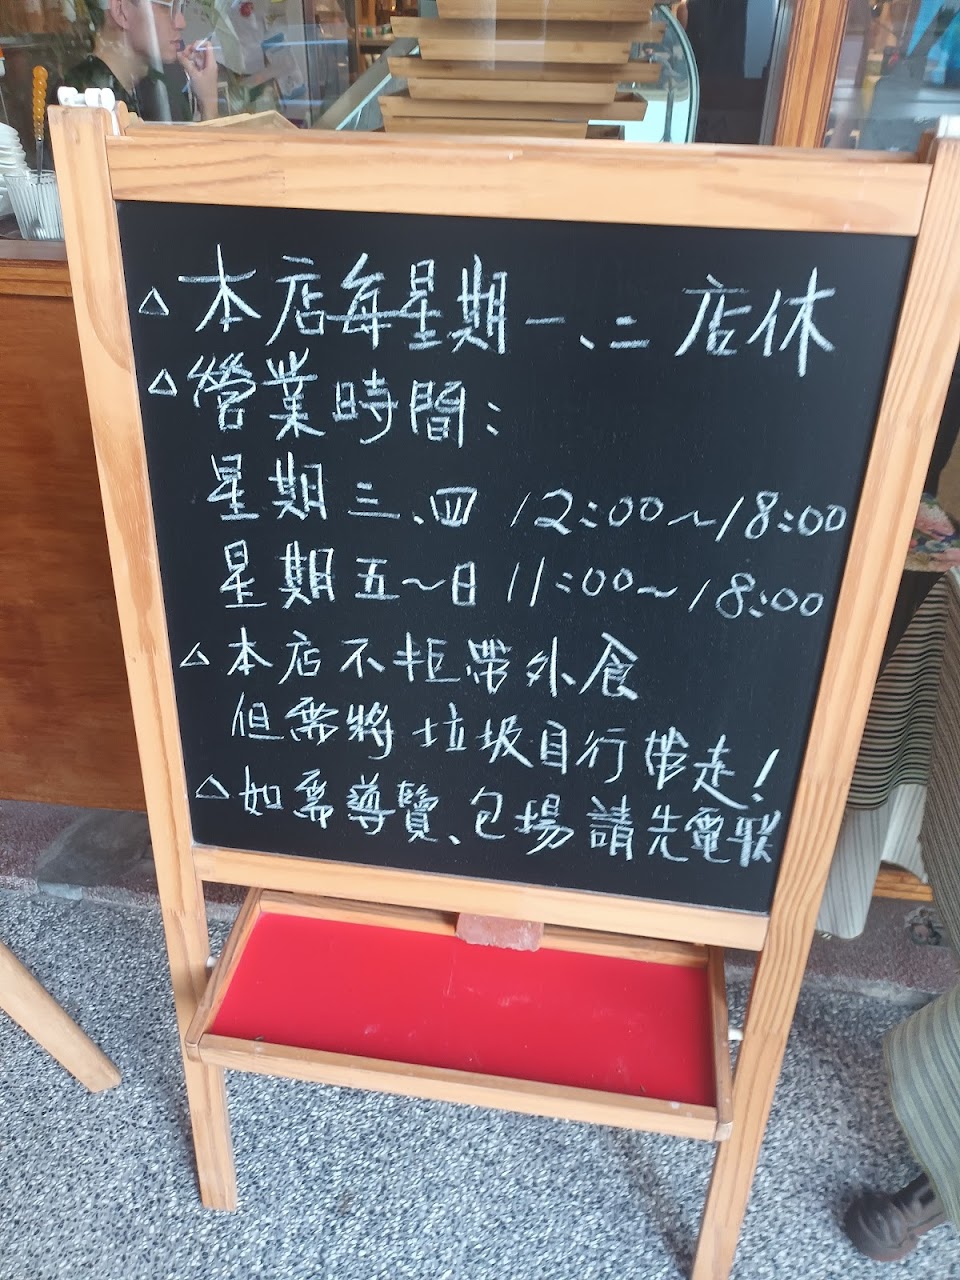 △本店每星期一、二 店休
△營業時間：
星期三、四 12:00~18:00
星期五~日 11:00~18:00
△本店不拒帶外食
但需將垃圾自行帶走!
△如需導覽、包場請先電聯